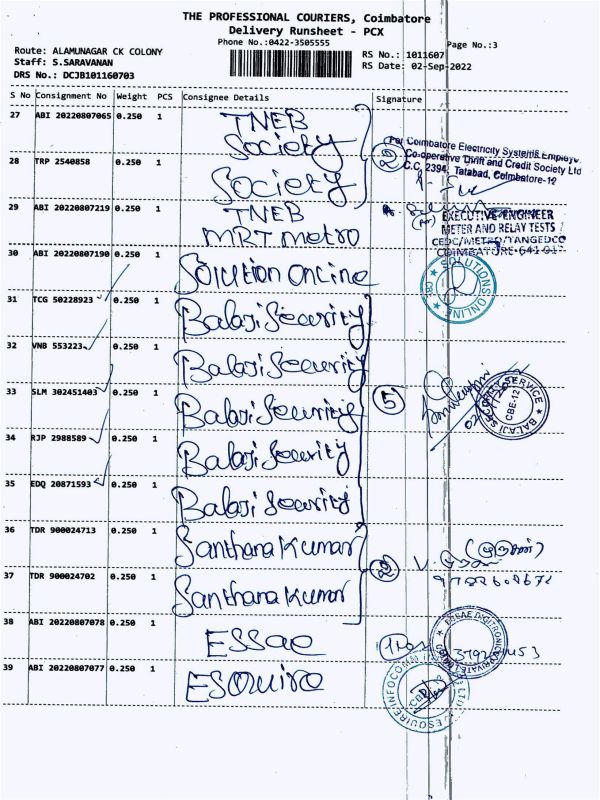 THE PROFESSIONAL COURIERS, Coimbatore
Delivery Runsheet - PCX
Phone No.:0422-3505555
Page No.:3
Route: ALAMUNAGAR CK COLONY
Staff: S.SARAVANAN
DRS No.: DCJB101160703
RS No.: 1011607
RS Date: 02-Sep-2022
S No Consignment No Weight PCS Consignee Details Signature
27 ABI 20220807065 0.250 1 TNEB
Society
Per Coimbatore Electricity System
Co-operative Thrift and Credit Society Ltd
C.C. 2394, Tatabad, Coimbatore-12
28 TRP 2540858 0.250 1 Society
2
29 ABI 20220807219 0.250 1 TNEB
MRT metro
EXECUTIVE ENGINEER
METER AND RELAY TESTS
CEDC/METRO/TANGEDCO
30 ABI 20220807190 0.250 1 Solution online
SOLUTIONS ONLINE
31 TCG 50228923 0.250 1 Balaji Security
32 VNB 553223 0.250 1 Balaji Security
33 SLM 302451403 0.250 1 Balaji Security
5
BALAJI SECURITY SERVICE
CBE-12
34 RJP 2988589 0.250 1 Balaji Security
35 EDQ 20871593 0.250 1 Balaji Security
36 TDR 900024713 0.250 1 Santhana Kumar
2
37 TDR 900024702 0.250 1 Santhana Kumar
38 ABI 20220807078 0.250 1 ESSae
39 ABI 20220807077 0.250 1 ESQuire